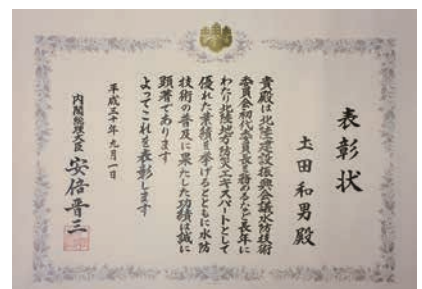 表彰状
土田和男殿
貴殿は北陸建設振興会議水防技術
委員会初代委員長を務めるなど長年に
わたり北陸地方防災エキスパートとして
優れた業績を挙げるとともに水防
技術の普及に果たした功績は誠に
顕著であります
よってこれを表彰します
平成三十年九月一日
内閣総理大臣 安倍晋三